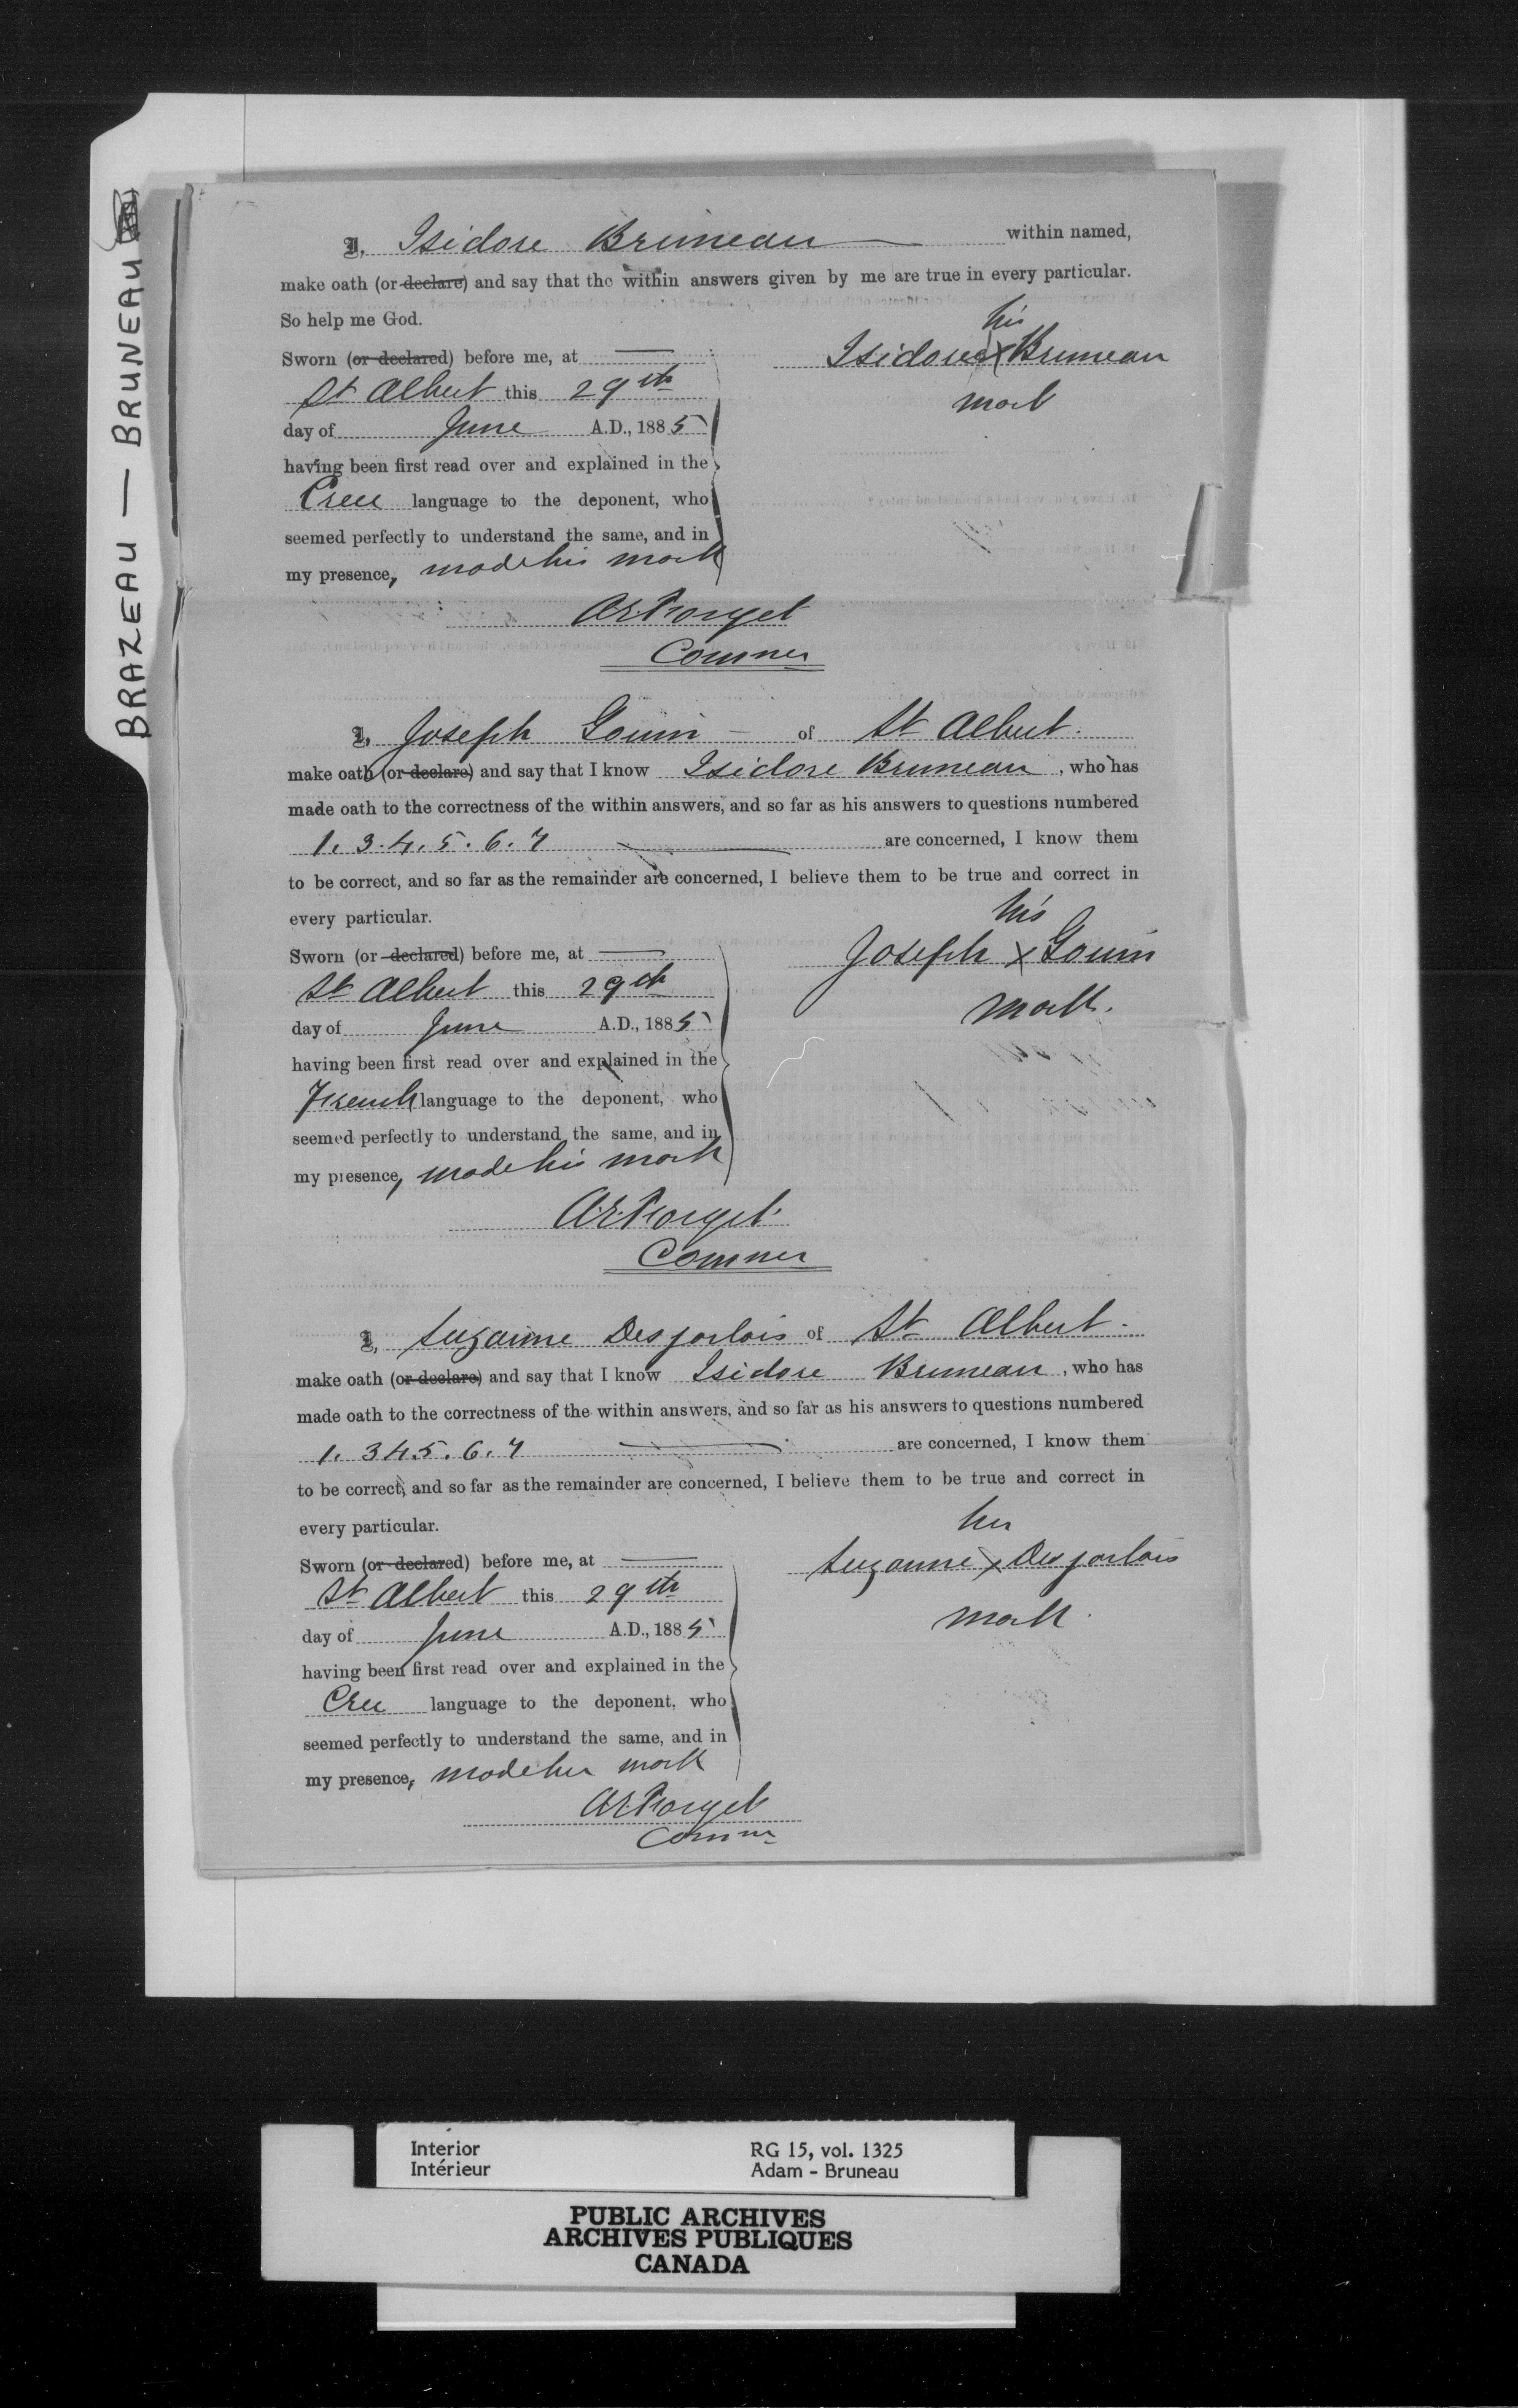 BRAZEAU — BRUNEAU
I, Isidore Bruneau within named,
make oath (or declare) and say that the within answers given by me are true in every particular.
So help me God.
Sworn (or declared) before me, at
St Albert this 29th
day of June A.D., 1885
having been first read over and explained in the
Cree language to the deponent, who
seemed perfectly to understand the same, and in
my presence, made his mark
his
Isidore x Bruneau
mark
A.E. Forget
Commer
I, Joseph Gouin of St Albert.
make oath (or declare) and say that I know Isidore Bruneau, who has
made oath to the correctness of the within answers, and so far as his answers to questions numbered
1. 3. 4. 5. 6. 7 are concerned, I know them
to be correct, and so far as the remainder are concerned, I believe them to be true and correct in
every particular.
Sworn (or declared) before me, at
St Albert this 29th
day of June A.D., 1885
having been first read over and explained in the
French language to the deponent, who
seemed perfectly to understand the same, and in
my presence, made his mark
his
Joseph x Gouin
mark.
A.E. Forget
Commer
I, Suzanne Desjarlais of St Albert.
make oath (or declare) and say that I know Isidore Bruneau, who has
made oath to the correctness of the within answers, and so far as his answers to questions numbered
1. 3 4 5. 6. 7 are concerned, I know them
to be correct, and so far as the remainder are concerned, I believe them to be true and correct in
every particular.
Sworn (or declared) before me, at
St Albert this 29th
day of June A.D., 1885
having been first read over and explained in the
Cree language to the deponent, who
seemed perfectly to understand the same, and in
my presence, made her mark
her
Suzanne x Desjarlais
mark.
A.E. Forget
Commr
Interior RG 15, vol. 1325
Intérieur Adam - Bruneau
PUBLIC ARCHIVES
ARCHIVES PUBLIQUES
CANADA